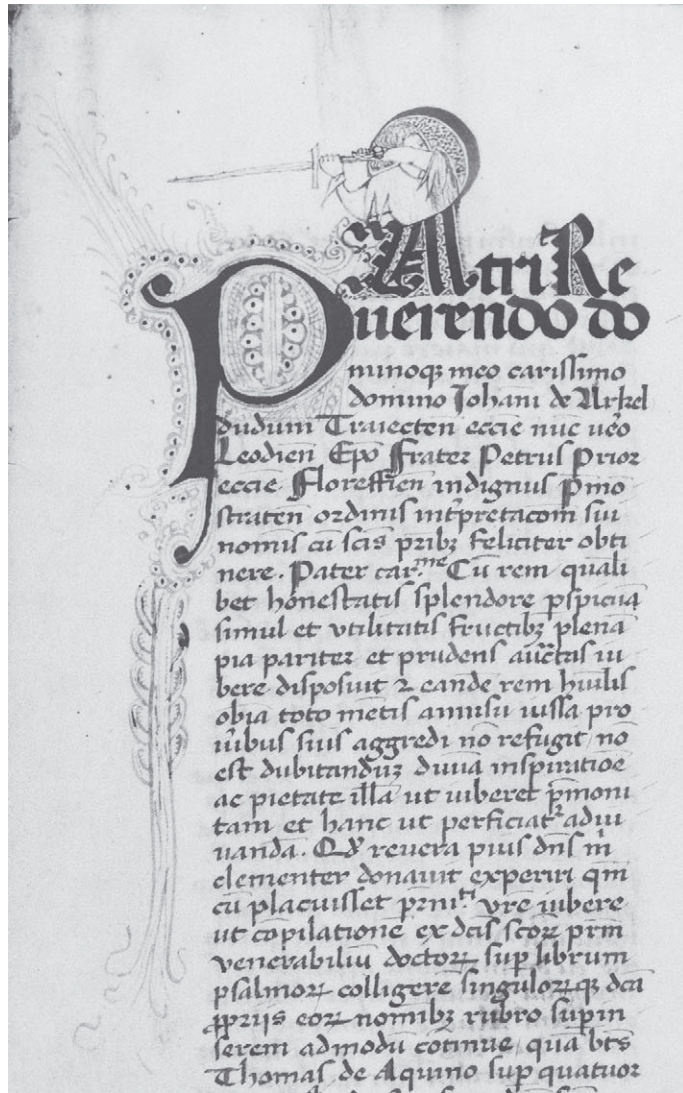 PAtri Re
uerendo do
minoq; meo carissimo
domino Johāni de Arkel
dudum Traiecten̄ eccīe nūc uēo
Leodien̄ Epō Frater Petrus Prior
eccīe Floreffien̄ indignus Pmō
straten̄ ordinis int̄pretacōm sui
nomīs cū sc̄is pr̄ibꝫ feliciter obti
nere. Pater car.me Cū rem quali
bet honestatis splendore p̄spicuā
simul et vtilitatis fructibꝫ plenā
pia pariter et prudens auc̄tas iu
bere disposuit ⁊ eandē rem hūilis
obīa toto mētis annisu iussa pro
uīribus suis aggredi nō refugit nō
est dubitanduꝫ diuīa inspiratiōe
ac pietate illā ut iuberet p̄moni
tam et hanc ut perficiat᷑ adiu
uandā. Qd̄ reuera pius dn̄s m̄
clementer donauit experiri qm̄
cū placuisset pr̄ni.ti vr̄e iubere
ut cōpilationē ex dc̄is sc̄oꝝ pr̄m
venerabiliū doctoꝝ sup̄ librum
psalmoꝝ colligerē singuloꝝqꝫ dc̄a
ꝓpriis eoꝝ nomibꝫ rubro sup̄in
serem admodū cōtinue quā bt̄s
Thomas de Aquino sup̄ quatuor